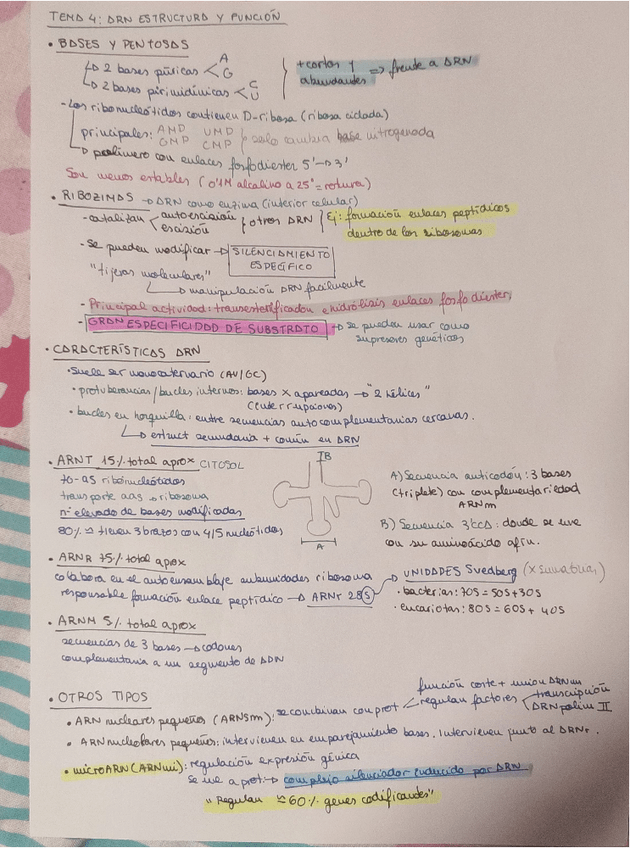 TEMA 4: ARN ESTRUCTURA Y FUNCIÓN
• BASES Y PENTOSAS
↳ 2 bases púricas < A G
↳ 2 bases pirimidínicas < C U
+ cortos y abundantes ⇒ frente a ADN
- Los ribonucleótidos contienen D-ribosa (ribosa ciclada)
principales: AMP UMP GMP CMP } solo cambia base nitrogenada
↳ polímero con enlaces fosfodiester 5'→3'
Son menos estables (0'1M alcalino a 25° = rotura)
• RIBOZIMAS → ARN como enzima (interior celular)
- catalizan < autoescisión escisión } otros ARN } Ej: formación enlaces peptídicos
dentro de los ribosomas
- Se pueden modificar → SILENCIAMIENTO ESPECÍFICO
"tijeras moleculares"
↳ manipulación ARN facilmente
- Principal actividad: transesterificación e hidrólisis enlaces fosfodiester,
- GRAN ESPECIFICIDAD DE SUBSTRATO → se pueden usar como
supresores genéticos
• CARACTERÍSTICAS ARN
• Suele ser monocatenario (AU/GC)
• protuberancias/bucles internos: bases x apareadas → "2 hélices"
(interrupciones)
• bucles en horquilla: entre secuencias autocomplementarias cercanas.
↳ estruct secundaria + común en ARN
• ARNT 15% total aprox CITOSOL
70-95 ribonucleótidos
transporte aas → ribosoma
nº elevado de bases modificadas
80% ≃ tienen 3 brazos con 4/5 nucleótidos
B
A
A) Secuencia anticodón: 3 bases
(triplete) con complementariedad
ARNm
B) Secuencia 3'CCA: donde se une
con su aminoácido afín.
• ARNR 75% total aprox
colabora en el autoensamblaje subunidades ribosoma
responsable formación enlace peptídico → ARNr 28S
→ UNIDADES Svedberg (x sumatorias)
• bacterias: 70S = 50S + 30S
• eucariotas: 80S = 60S + 40S
• ARNM 5% total aprox
secuencias de 3 bases → codones
complementaria a un segmento de ADN
• OTROS TIPOS
• ARN nucleares pequeños (ARNSm): se combinan con prot < función corte + union ARNm
regulan factores < transcripción ARN polim II
• ARN nucleolares pequeños: intervienen en emparejamiento bases. Intervienen junto al ARNr.
• microARN (ARNmi): regulación expresión génica
Se une a prot: → complejo silenciador inducido por ARN
"Regulan ≃ 60% genes codificantes"